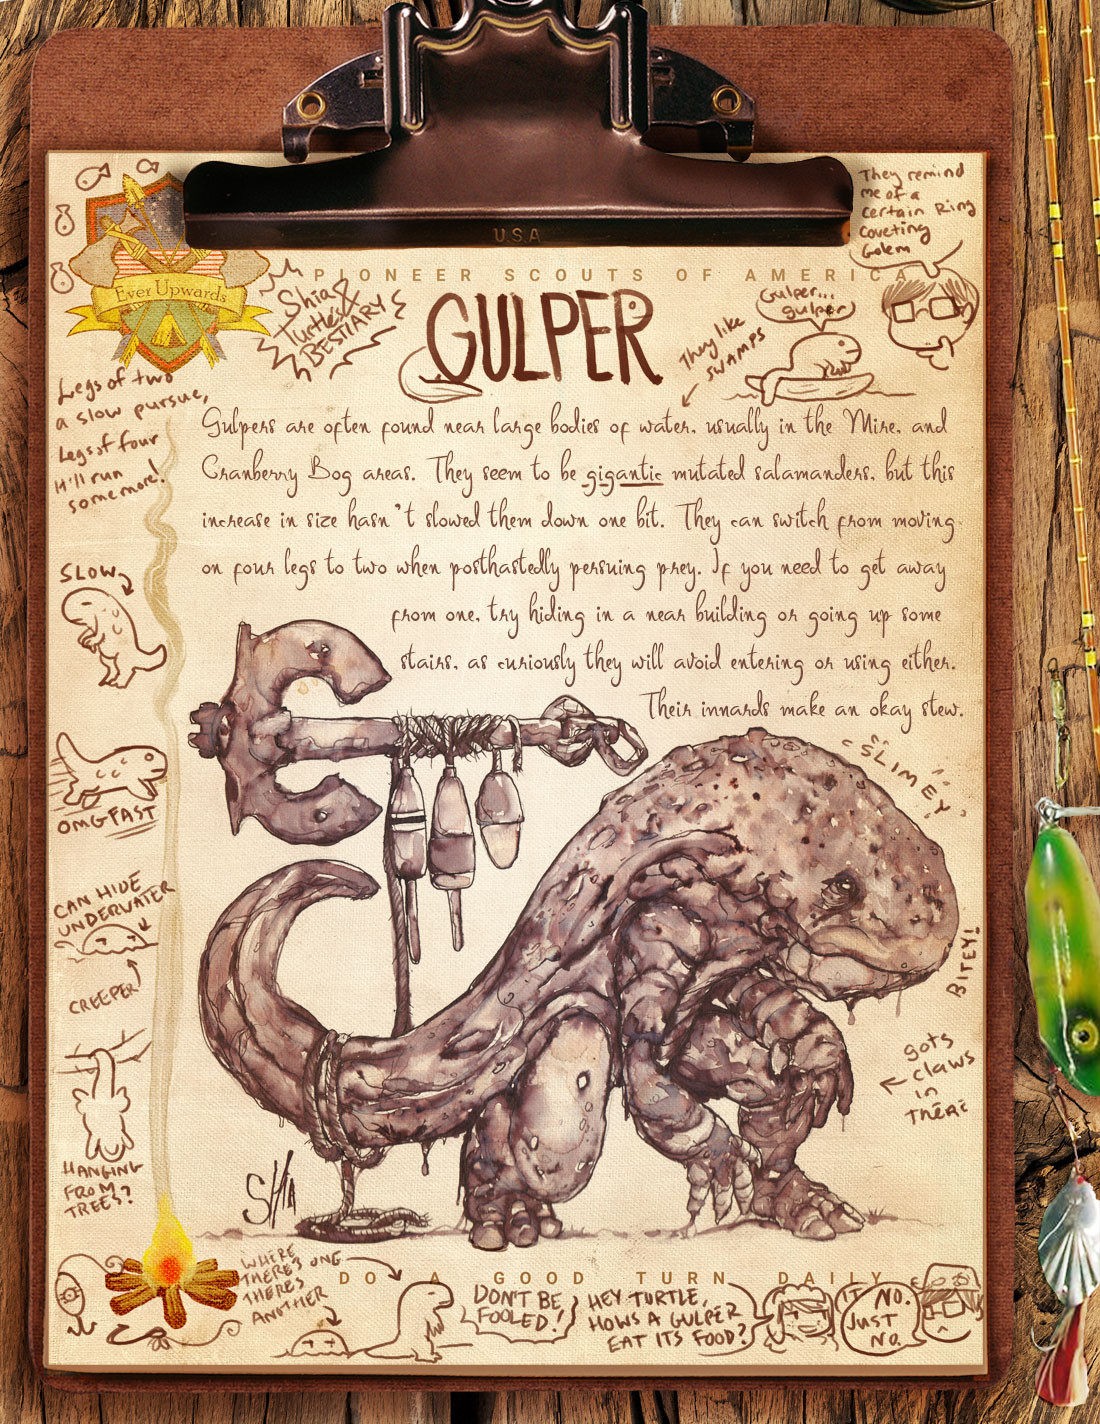 U.S.A.
They remind
me of a
certain Ring
coveting
Golem
Ever Upwards
PIONEER SCOUTS OF AMERICA
Shia &
Turtle's
BESTIARY
GULPER
They like
SWAMPS
Gulper...
gulper
Legs of two
a slow pursue,
Legs of four
it'll run
some more!
Gulpers are often found near large bodies of water, usually in the Mire, and
Cranberry Bog areas. They seem to be gigantic mutated salamanders, but this
increase in size hasn't slowed them down one bit. They can switch from moving
on four legs to two when posthastedly persuing prey. If you need to get away
from one, try hiding in a near building or going up some
stairs, as curiously they will avoid entering or using either.
Their innards make an okay stew.
SLOW
OMG FAST
CAN HIDE
UNDERWATER
CREEPER
HANGING
FROM
TREES?
"SLIMEY"
BITEY!
gots
claws
in
THERE
SHIA
WHERE
THERE'S ONE
THERES
ANOTHER
DO A GOOD TURN DAILY
DON'T BE
FOOLED!
HEY TURTLE,
HOWS A GULPER
EAT ITS FOOD?
IT
NO.
JUST
NO.